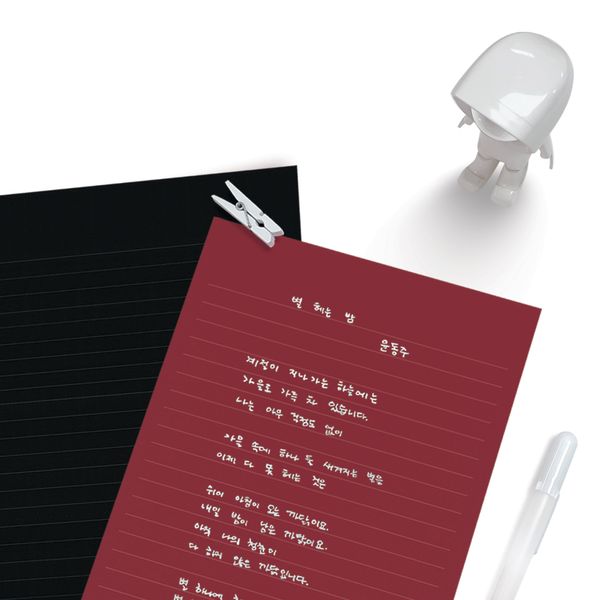 별 헤는 밤
윤동주
계절이 지나가는 하늘에는
가을로 가득 차 있습니다.
나는 아무 걱정도 없이
가을 속에 하나 둘 새겨지는 별을
이제 다 못 헤는 것은
쉬이 아침이 오는 까닭이요.
내일 밤이 남은 까닭이요.
아직 나의 청춘이
다 하지 않은 까닭입니다.
별 하나에
별